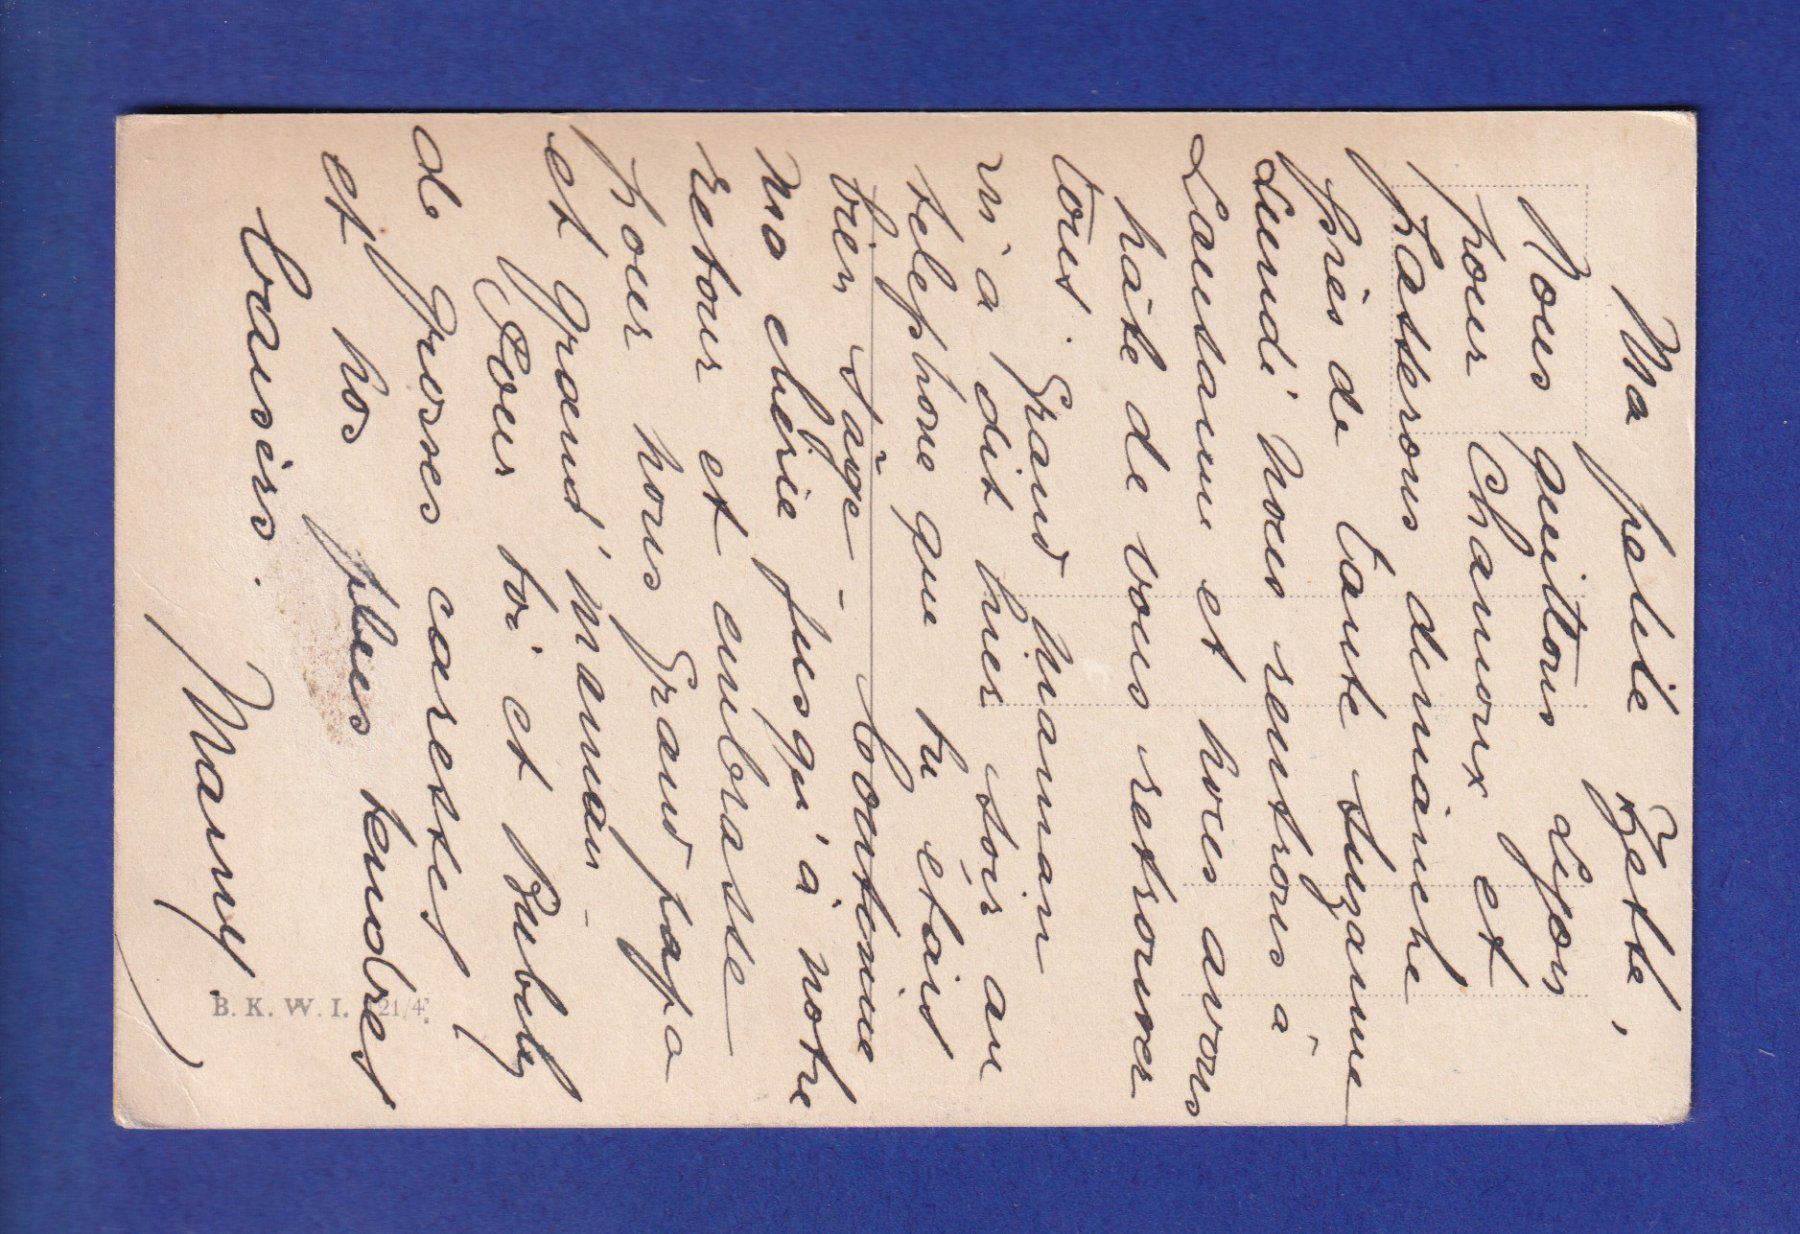 Ma petite Zette,
Nous quittons Lyon
pour Chamonix et
passerons dimanche
près de tante Suzanne
Lundi nous rentrons à
Lausanne et nous avons
hâte de vous retrouver
tous. Grand maman
m'a dit hier soir au
telephone que tu étais
bien sage - Continue
ma chérie jusqu'à notre
retour et embrasse
pour nous Grand papa
et Grand'maman -
Pour toi et Buby
de grosses caresses
et nos plus tendres
baisers.
Many.
B. K. W. I. 21/4